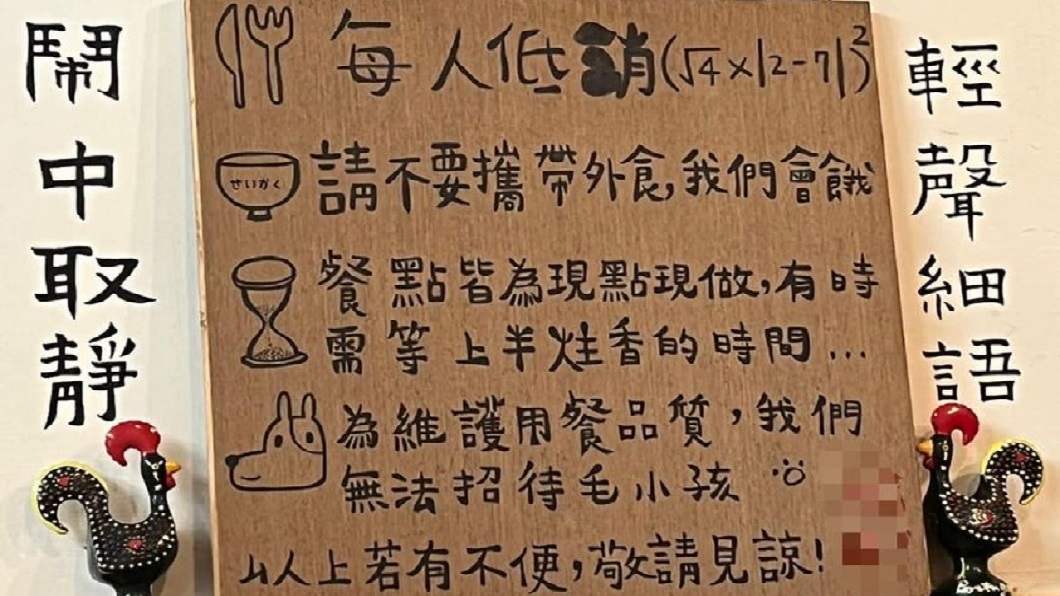 鬧中取靜
每人低銷(√4×|2-7|)²
せいかく
請不要攜帶外食,我們會餓
餐點皆為現點現做,有時
需等上半炷香的時間...
為維護用餐品質,我們
無法招待毛小孩
以上若有不便,敬請見諒!
輕聲細語